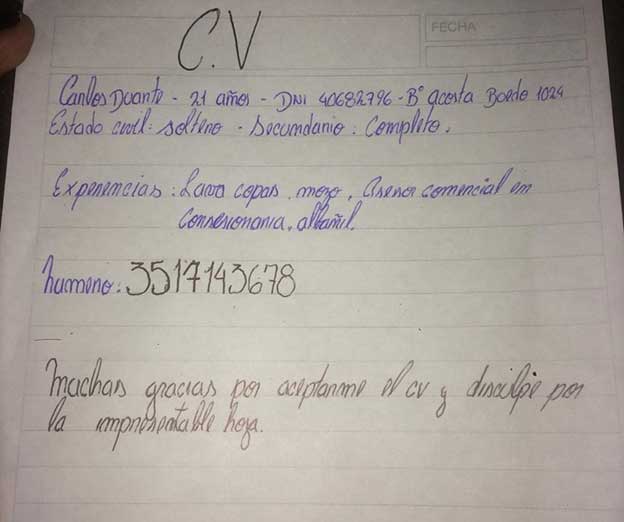 C.V
FECHA
Carlos Duarte - 21 años - DNI 40682796 - B° acosta Boedo 1024
Estado civil: soltero - Secundario: Completo.
Experiencias: Lava copas, mozo, Asesor comercial en
Consesionaria, albañil.
numero: 3517143678
muchas gracias por aceptarme el cv y disculpe por
la impresentable hoja.